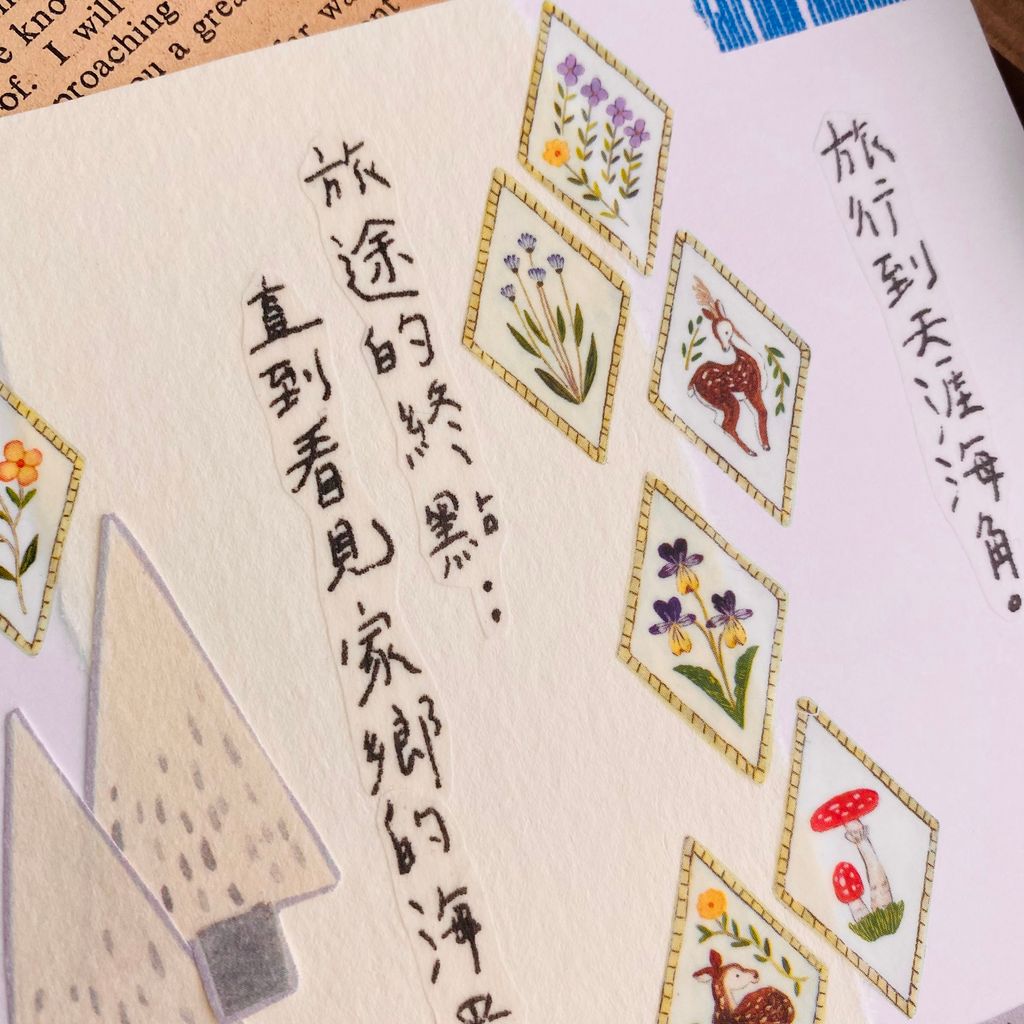 know
of. I will
proaching
a grea
旅行到天涯海角。
旅途的終點：
直到看見家鄉的海